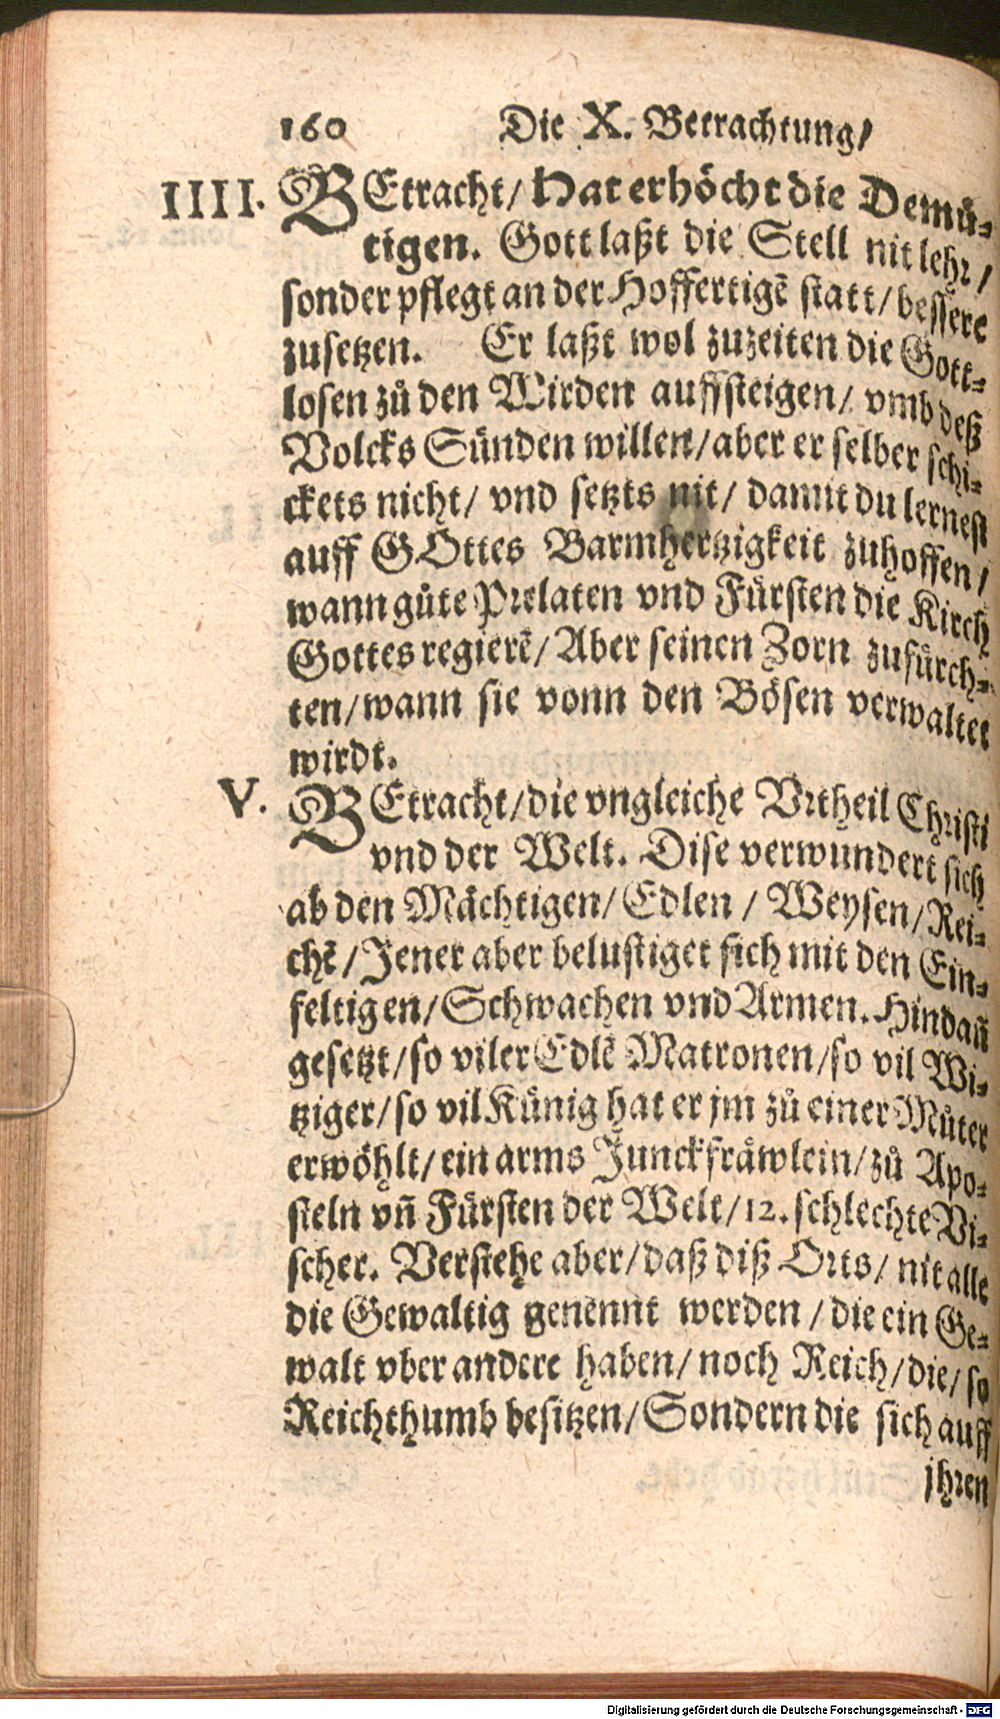 160 Die X. Betrachtung/
IIII. BEtracht/ Hat erhöcht die Demuͤ-
tigen. Gott laßt die Stell nit lehr/
sonder pflegt an der Hoffertigẽ statt/ bessere
zusetzen. Er laßt wol zuzeiten die Gott-
losen zů den Wirden auffsteigen/ vmb deß
Volcks Sünden willen/ aber er selber schi-
ckets nicht/ vnd setzts nit/ damit du lernest
auff GOttes Barmhertzigkeit zuhoffen/
wann gůte Prelaten vnd Fürsten die Kirch
Gottes regierẽ/ Aber seinen Zorn zufürch-
ten/ wann sie vonn den Bösen verwaltet
wirdt.
V. BEtracht/ die vngleiche Vrtheil Christi
vnd der Welt. Dise verwundert sich
ab den Mächtigen/ Edlen / Weysen/ Rei-
chẽ/ Jener aber belustiget sich mit den Ein-
feltigen/ Schwachen vnd Armen. Hindañ
gesetzt/ so viler Edlẽ Matronen/ so vil Wi-
tziger/ so vil Künig hat er jm zů einer Můter
erwöhlt/ ein arms Junckfräwlein/ zů Apo-
steln vñ Fürsten der Welt/ 12. schlechte Vi-
scher. Verstehe aber/ daß diß Orts/ nit alle
die Gewaltig genennt werden / die ein Ge-
walt vber andere haben/ noch Reich/ die/ so
Reichthumb besitzen/ Sondern die sich auff
jhren
Digitalisierung gefördert durch die Deutsche Forschungsgemeinschaft - DFG